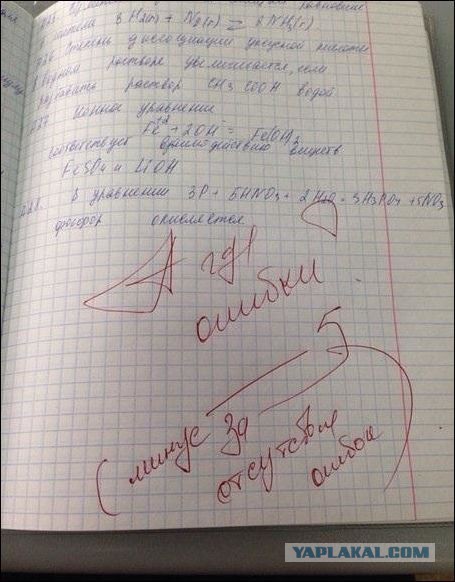 равновесие
3 H2(г) + N2(г) = 2NH3(г)
Степень диссоциации уксусной кислоты
в водном растворе увеличивается, если
разбавить раствор CH3COOH водой
Ионное уравнение
Fe+2 + 2OH- = Fe(OH)2
соответствует взаимодействию веществ
FeSO4 и LiOH
В уравнении 3P + 5HNO3 + 2H2O = 3H3PO4 + 5NO
фосфор окисляется
А где
ошибки?
5
(минус за
отсутствие
ошибок)
YAPLAKAL.COM